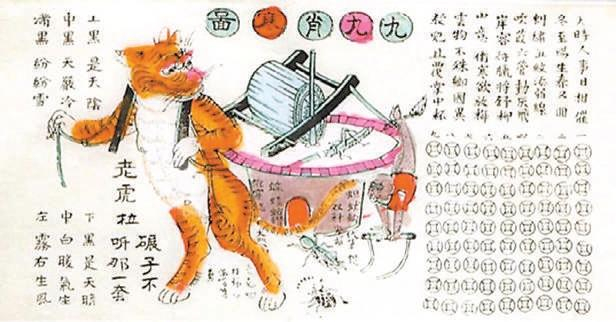 九九肖寒啚
天時人事日相催
冬至陽生春又回
刺繡五紋添弱線
吹葭六管動灰飛
岸容待臘將舒柳
山意衝寒欲放梅
雲物不殊鄉國異
教兒且覆掌中杯
一二三四五六七八九
上黑是天陰
中黑天嚴冷
滿黑紛紛雪
老虎拉
碾子不
听那一套
下黑是天晴
中白暖氣生
左霧右生風